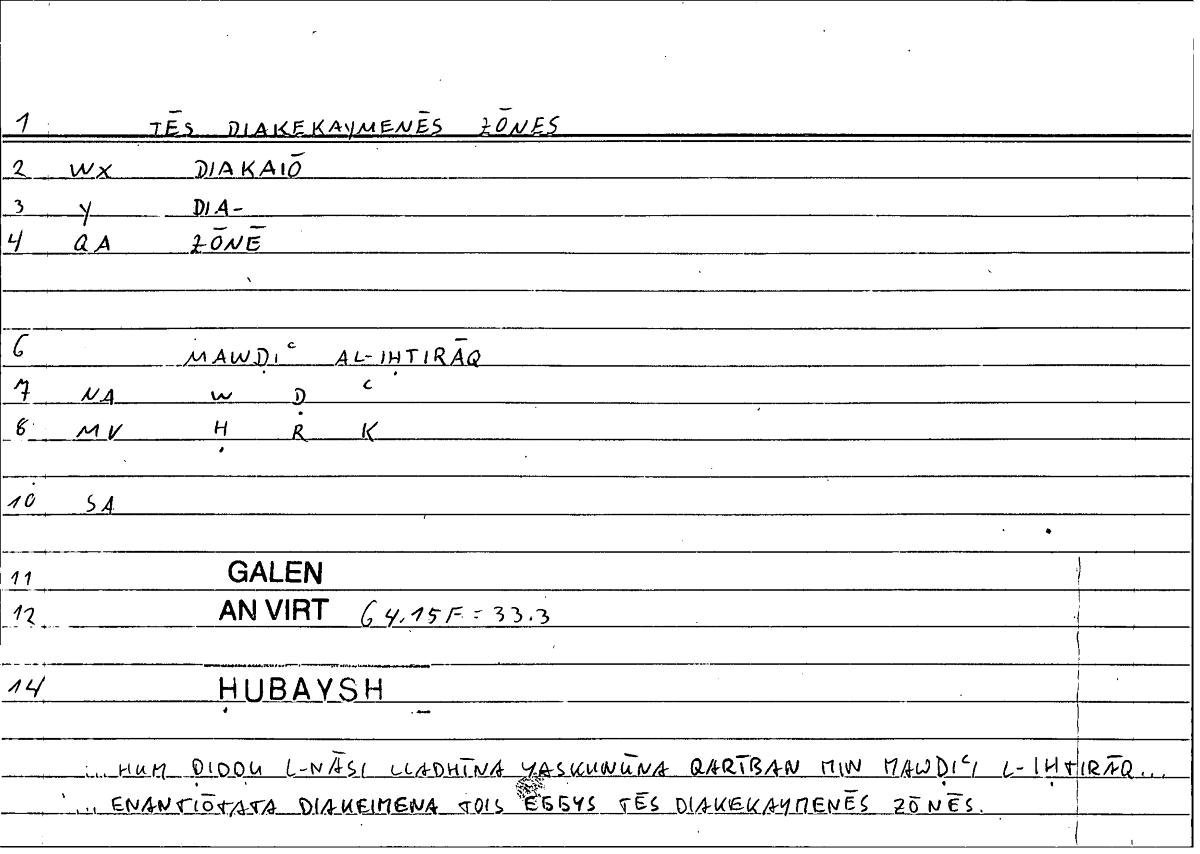 1 TĒS DIAKEKAYMENĒS ZŌNES
2 WX DIAKAIŌ
3 Y DIA-
4 QA ZŌNĒ
6 MAWḌIᶜ AL-IḤTIRĀQ
7 NA W Ḍ ᶜ
8 MV Ḥ R K
10 SA
11 GALEN
12 AN VIRT 64.15F = 33.3
14 ḤUBAYSH
... HUM ḌIDDU L-NĀSI LLADHĪNA YASKUNŪNA QARĪBAN MIN MAWḌIᶜI L-IḤTIRĀQ...
... ENANTIŌTATA DIAKEIMENA TOIS EGGYS TĒS DIAKEKAYMENĒS ZŌNĒS.